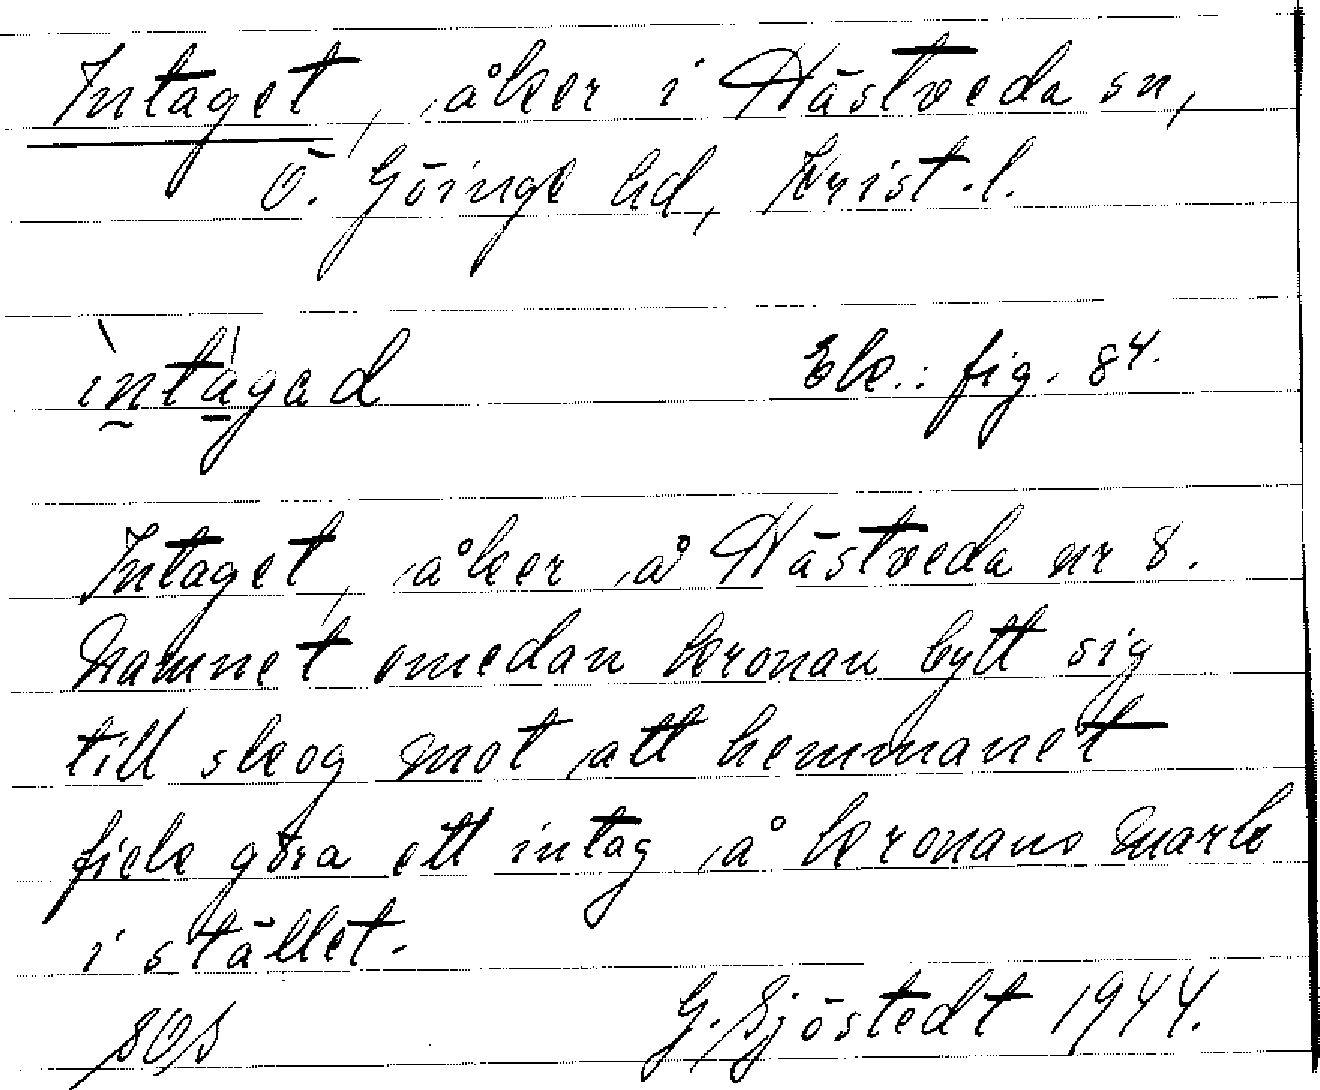 Intaget, åker i Hästveda sn,
Ö. Göinge hd, Krist. l.
ìntàgad Ek.: fig. 84.
Intaget, åker å Hästveda nr 8.
Namnet emedan kronan bytt sig
till skog mot att hemmanet
fick göra ett intag å kronans mark
i stället.
G. Sjöstedt 1944.